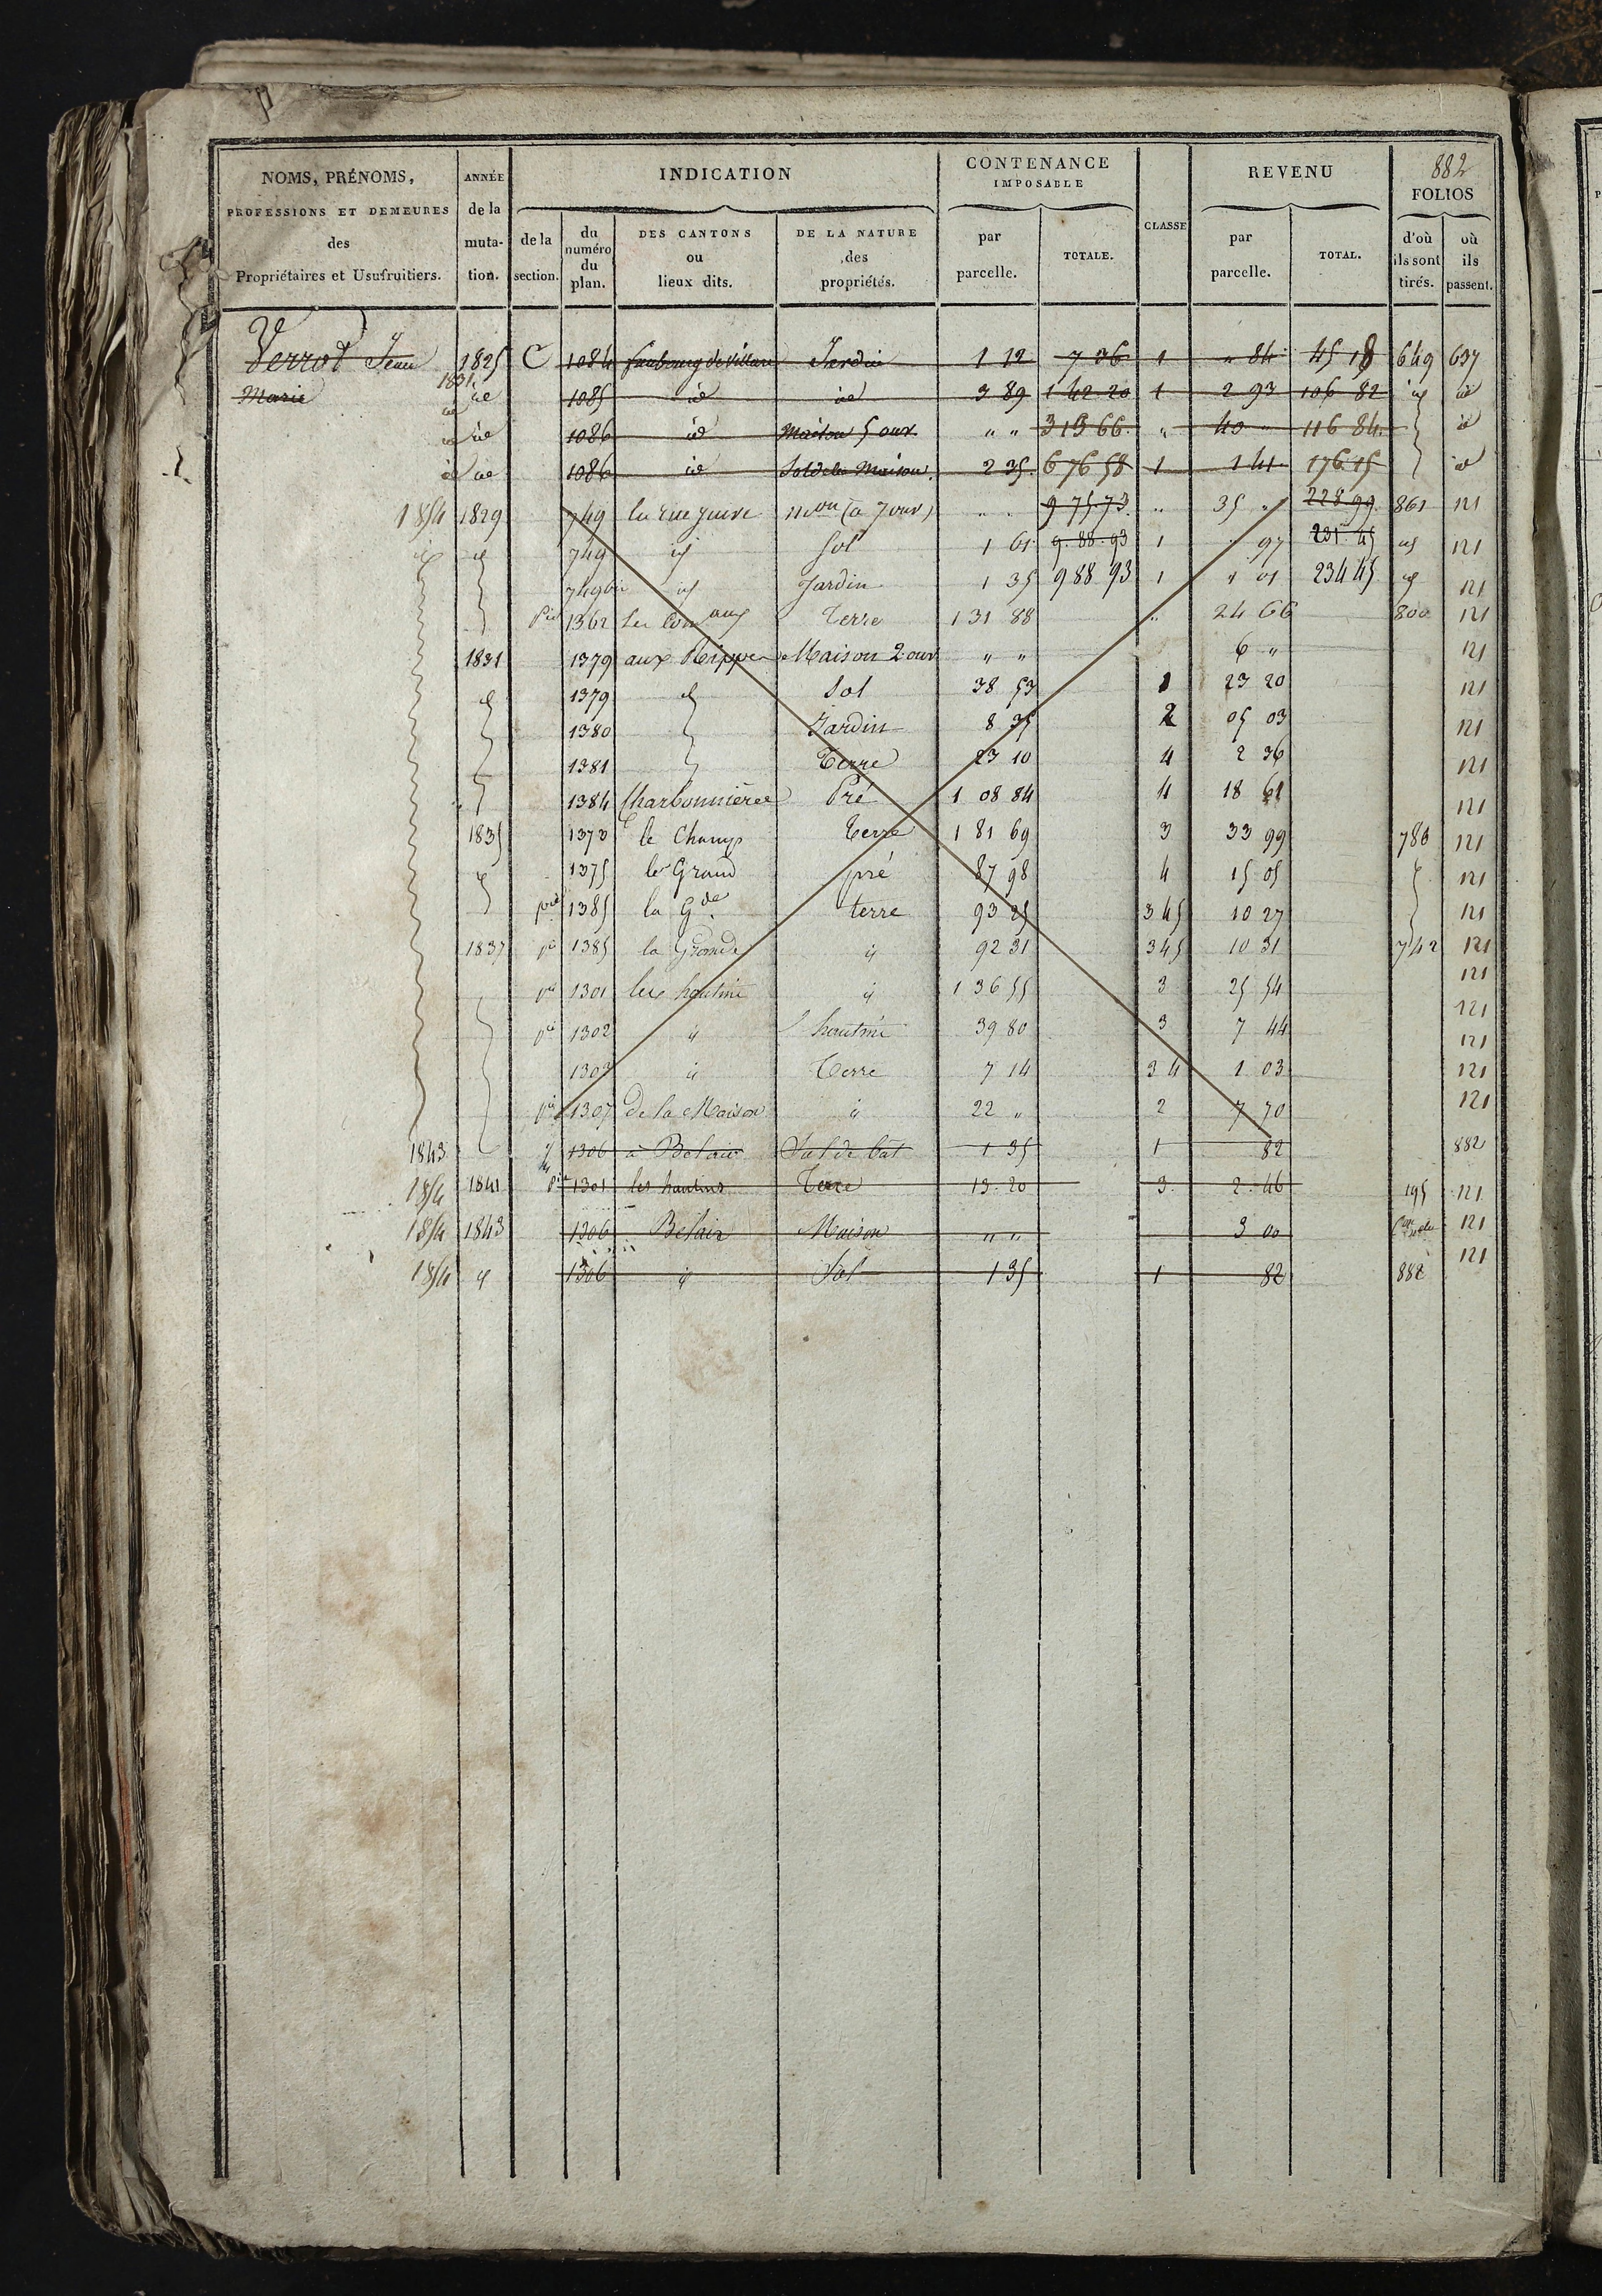 882
NOMS, PRÉNOMS, PROFESSIONS ET DEMEURES des Propriétaires et Usufruitiers. ANNÉE de la muta-tion. INDICATION CONTENANCE IMPOSABLE CLASSE REVENU FOLIOS
de la section. du numéro du plan. DES CANTONS ou lieux dits. DE LA NATURE des propriétés. par parcelle. TOTALE. par parcelle. TOTAL. d'où ils sont tirés. où ils passent.
Verrot Jean 1825 C 1084 faubourg de Villars Jardin 1 12 7 36 1 " 84 45 18 649 697
Marie 1831 id 1085 id id 3 89 1 42 20 1 2 93 106 82 id id
id id 1086 id Maison 5 ouv " " 3 13 66 " 40 " 116 84 id
id id 1086 id Sol de la Maison 2 35 6 76 58 1 1 41 176 15 id
1854 1829 749 la rue juive mon (a 7 ouv) " " 9 75 73 " 35 " 228 99 861 121
id id 749 id Sol 1 61 9 88 93 1 " 97 231 45 id 121
749 bis id Jardin 1 35 988 93 1 1 01 234 45 id 121
Pie 1362 Les aux Terre 1 31 88 " 24 66 800 121
1831 1379 aux Maison 2 ouv " " 6 " 121
id 1379 id Sol 38 53 1 23 20 121
1380 Jardin 8 35 2 05 03 121
1381 Terre 23 10 4 2 36 121
1384 Charbonnières Pré 1 08 84 4 18 61 121
1835 1373 le Champ Terre 1 81 69 3 33 99 786 121
id 1375 le Grand pré 87 98 4 15 05 121
pie 1385 la Gde terre 93 25 345 10 27 121
1837 pie 1385 la Grande id 92 31 345 10 31 742 121
pie 1301 les hautins id 1 36 55 3 25 54 121
121
pie 1302 id hautins 39 80 3 7 44 121
1303 id Terre 7 14 34 1 03 121
pie 1307 de la Maison id 22 " 2 7 70 121
1843 1306 à Belair Sol de bat 1 35 1 82 882
1854 1841 Pie 1301 les hautins Terre 13 20 3 2 46 195 121
1854 1843 1306 Belair Maison " " 3 00 121
1854 id 1306 id Sol 1 35 1 82 882 121